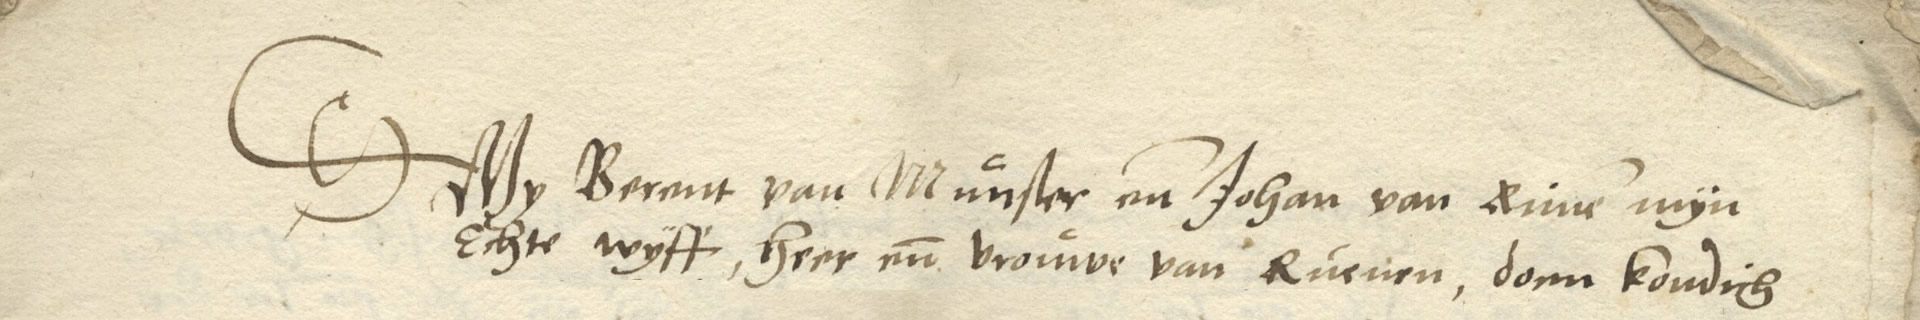 Wy Berent van Munster en Johan van Rine myn
Echte wyff, heer en vrouwe van Ruenen, doen kondich